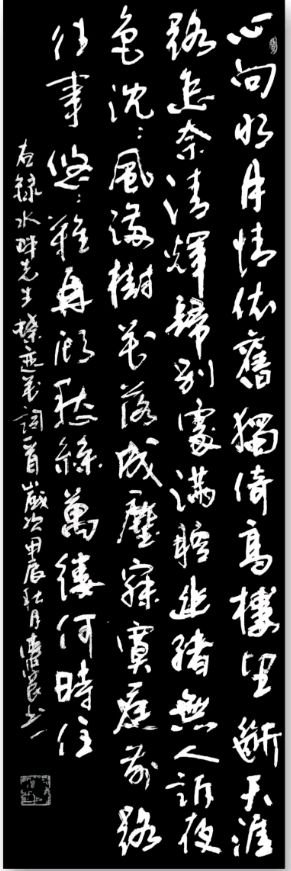 心向明月情依舊獨倚高樓望斷天涯
路怎奈清輝歸別處滿腔幽緒無人訴夜
色沈沈風樹花落成塵寂寞前路
往事悠悠難再顧愁絲萬縷何時住
右錄水先生蝶戀花詞一首歲次甲辰秋月書